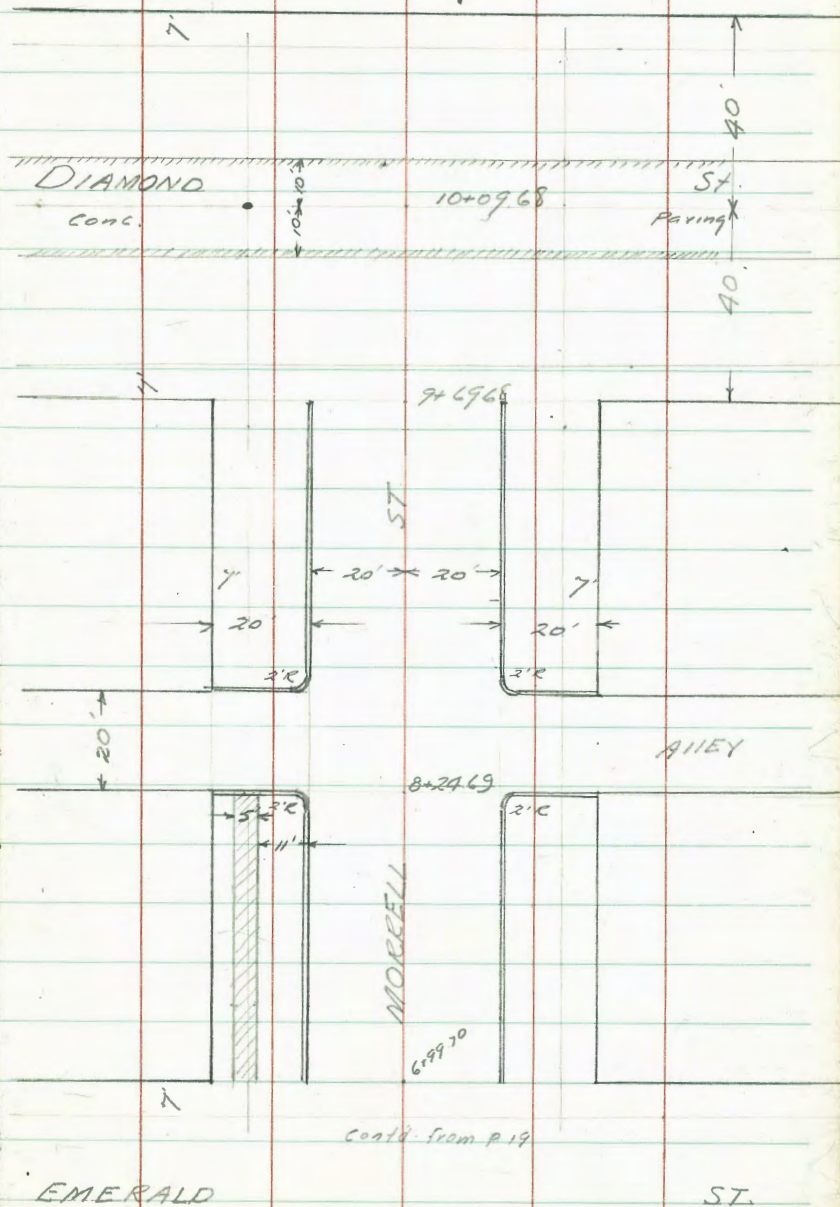 7'
40'
DIAMOND St.
10' 10'
10+09.68
Conc. Paving
40'
9+69.68
ST
20' 20'
7' 7'
20' 20'
2'R 2'R
20'
ALLEY
8+24.69
5' 2'R 2'R
11'
MORRELL
6+99.70
7'
Contd. from p 19
EMERALD ST.